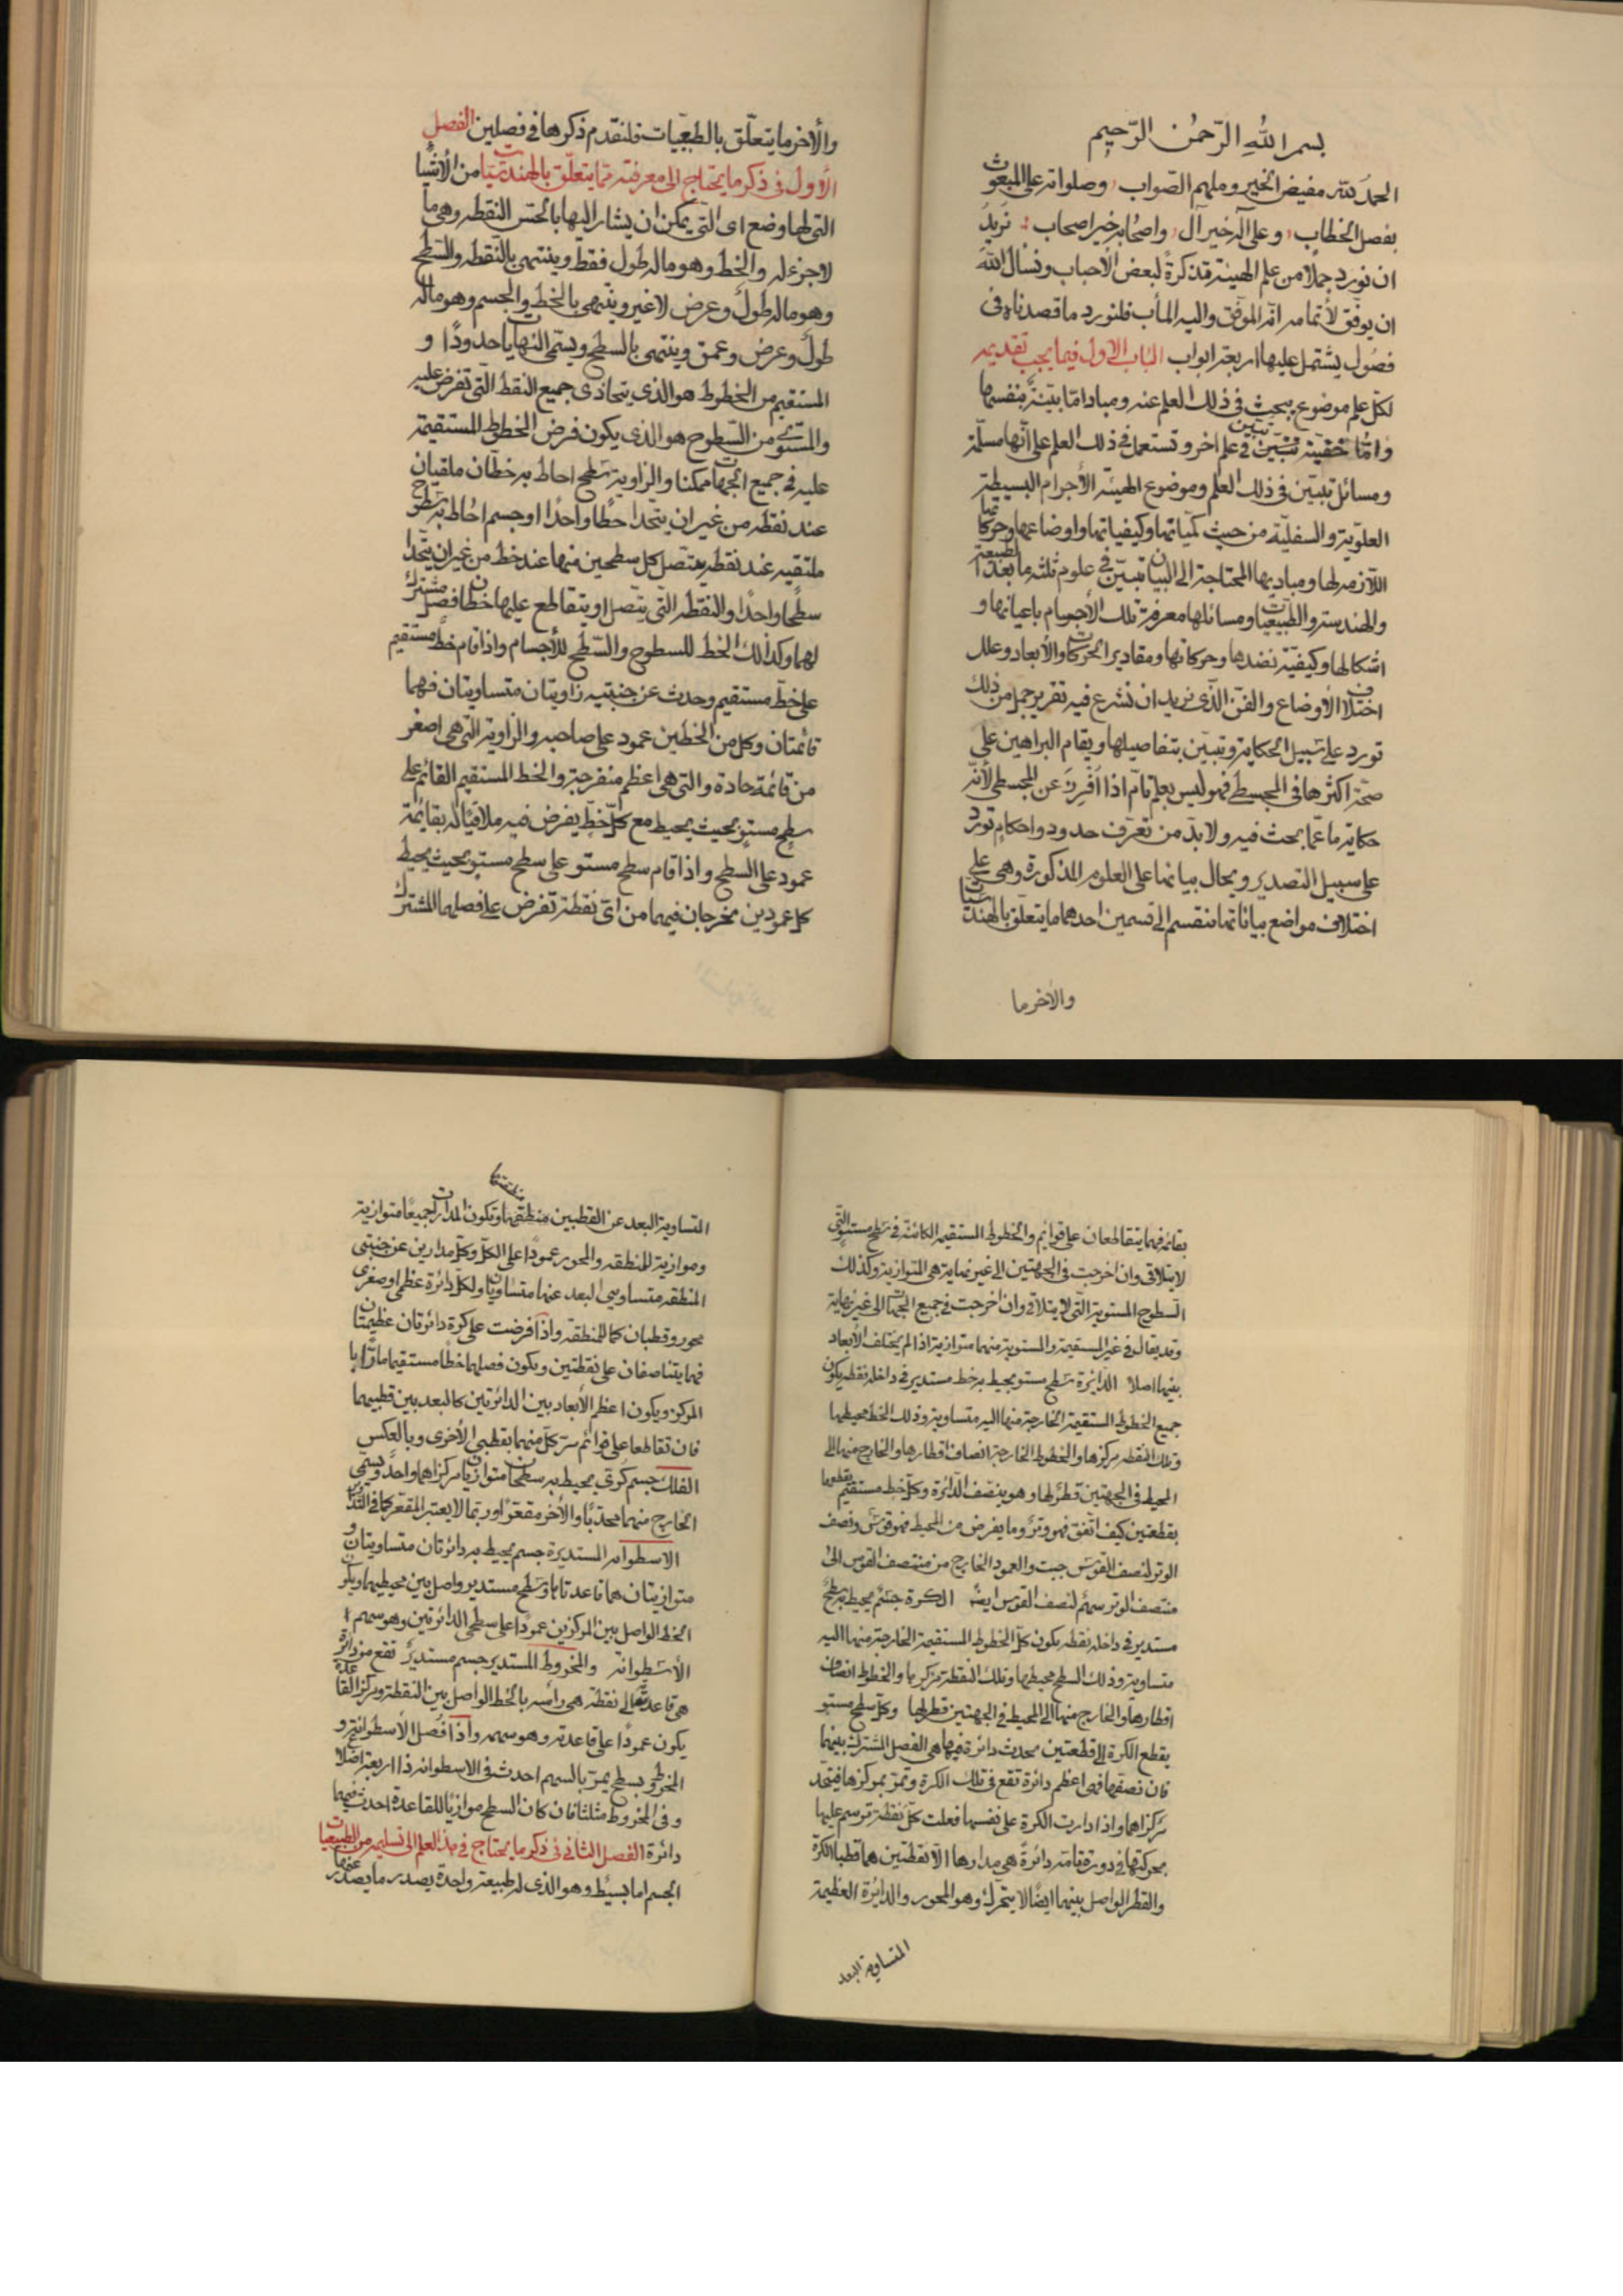 بسم الله الرحمن الرحيم
الحمد لله مفيض الخير وملهم الصواب وصلواته على المبعوث
بفصل الخطاب وعلى آله خير آل واصحابه خير اصحاب نريد
ان نورد جملا من علم الهيئة تذكرة لبعض الاحباب ونسأل الله
ان يوفق لاتمامه انه الموفق واليه المآب فلنورد ما قصدناه في
فصول يشتمل عليها اربعة ابواب الباب الاول فيما يجب تقديمه
لكل علم موضوع يبحث في ذلك العلم عنه ومباد اما بينة بنفسها
واما خفية تتبين في علم اخر وتستعمل في ذلك العلم على انها مسلمة
ومسائل تتبين في ذلك العلم وموضوع الهيئة الاجرام البسيطة
العلوية والسفلية من حيث كمياتها وكيفياتها واوضاعها وحركاتها
اللازمة لها ومباديها المحتاجة الى البيان تتبين في علوم ثلثة ما بعد الطبيعة
والهندسة والطبيعيات ومسائلها معرفة تلك الاجرام باعيانها و
اشكالها وكيفية نضدها وحركاتها ومقادير الحركات والابعاد وعلل
اختلاف الاوضاع والفن الذي نريد ان نشرع فيه تقرير جمل من ذلك
تورد على سبيل الحكاية وتبين بتفاصيلها ويقام البراهين على
صحة اكثرها في المجسطي فهو ليس بعلم تام اذا افرد عن المجسطي لانه
حكاية ما عما يحث فيه ولا بد من تعرف حدود واحكام تورد
على سبيل التصدير ويحال بيانها على العلوم المذكورة وهي على
اختلاف مواضع بياناتها تنقسم الى قسمين احدهما ما يتعلق بالهندسيات
والاخر ما
والاخر ما يتعلق بالطبيعيات فلنقدم ذكرها في فصلين الفصل
الاول في ذكر ما يحتاج الى معرفته مما يتعلق بالهندسيات من الاشياء
التي لها وضع اي التي يمكن ان يشار اليها بالحس النقطة وهي ما
لا جزء له والخط وهو ماله طول فقط وينتهي بالنقطة والسطح
وهو ماله طول وعرض لا غير وينتهي بالخط والجسم وهو ماله
طول وعرض وعمق وينتهي بالسطح ويسمى النهايات حدودا و
المستقيم من الخطوط هو الذي يتحاذى جميع النقط التي تفرض عليه
والمستوي من السطوح هو الذي يكون فرض الخطوط المستقيمة
عليه في جميع الجهات ممكنا والزاوية سطح احاط به خطان ملتقيان
عند نقطة من غير ان يتحدا خطا واحدا او جسم احاط به سطوح
ملتقيه عند نقطة يتصل كل سطحين منها عند خط من غير ان يتحدا
سطحا واحدا والنقطة التي يتصل او يتقاطع عليها خطان فصل مشترك
لهما وكذلك الخط للسطوح والسطح للاجسام واذا قام خط مستقيم
على خط مستقيم وحدث عن جنبتيه زاويتان متساويتان فهما
قائمتان وكل من الخطين عمود على صاحبه والزاوية التي هي اصغر
من قائمة حادة والتي هي اعظم منفرجة والخط المستقيم القائم على
سطح مستو بحيث يحيط مع كل خط يفرض فيه ملاقيا له بقائمة
عمود على السطح واذا قام سطح مستو على سطح مستو بحيث يحيط
كل عمودين يخرجان فيهما من اي نقطة تفرض على فصلهما المشترك
بقائمة فهما يتقاطعان على قوائم والخطوط المستقيمه الكائنة في سطح مستو التي
لا يتلاقى وان اخرجت في الجهتين الى غير نهاية هي المتوازية وكذلك
السطوح المستوية التي لا يتلاقى وان اخرجت في جميع الجهات الى غير نهاية
وقد يقال في غير المستقيمة والمستوية منهما متوازية اذا لم يختلف الابعاد
بينها اصلا الدائرة سطح مستو يحيط به خط مستدير في داخله نقطة يكون
جميع الخطوط المستقيمة الخارجة منها اليه متساوية وذلك الخط محيطها
وتلك النقطة مركزها والخطوط الخارجة انصاف اقطارها والخارج منها الى
المحيط في الجهتين قطر لها وهو ينصف الدائرة وكل خط مستقيم يقطعها
بقطعتين كيف اتفق فهو وتر وما يفرض من المحيط فهو قوس ونصف
الوتر لنصف القوس جيب والعمود الخارج من منتصف القوس الى
منتصف الوتر سهم لنصف القوس ايضا الكرة جسم يحيط به سطح
مستدير في داخله نقطة يكون كل الخطوط المستقيمة الخارجة منها اليه
متساوية وذلك السطح محيطها وتلك النقطة مركزها والخطوط انصاف
اقطارها والخارج منها الى المحيط في الجهتين قطر لها وكل سطح مستو
يقطع الكرة الى قطعتين يحدث دائرة فيها هي الفصل المشترك بينهما
فان نصفها فهي اعظم دائرة تقع في تلك الكرة وتمر بمركزها فيتحد
مركزاهما واذا دارت الكرة على نفسها فعلت كل نقطة ترسم عليها
بحركتها في دورة تامة دائرة هي مدارها الا نقطتين هما قطبا الكرة
والقطر الواصل بينهما ايضا لا يتحرك وهو المحور والدائرة العظيمة
المتساوية البعد
المتساوية البعد عن القطبين منطقتها وتكون المدارات جميعا متوازية
منطقتها
وموازية للمنطقة والمحور عمودا على الكل وكل مدارين عن جنبتي
المنطقه متساويي البعد عنها متساويان ولكل دائرة عظمى او صغرى
محور وقطبان كما للمنطقة واذا فرضت على كرة دائرتان عظيمتان
فهما يتناصفان على نقطتين ويكون فصلهما خطا مستقيما مارا با
المركز ويكون اعظم الابعاد بين الدائرتين كالبعد بين قطبيهما
فان تقاطعا على قوائم مر كل منهما بقطبي الاخرى وبالعكس
الفلك جسم كرى يحيط به سطحان متوازيان مركزاهما واحد ويسمى
الخارج منهما محدبا والاخر مقعرا وربما لا يعتبر المقعر كما في التدوير
الاسطوانه المستديرة جسم يحيط به دائرتان متساويتان و
متوازيتان هما قاعدتاها وسطح مستدير واصل بين محيطيهما ويكون
الخط الواصل بين المركزين عمودا على سطحي الدائرتين وهو سهم ا
الاسطوانة والمخروط المستدير جسم مستدير يقع من دائرة
هي قاعدته الى نقطة هي رأسه بالخط الواصل بين النقطة ومركز القاعدة
يكون عمودا على قاعدته وهو سهمه واذا فصل الاسطوانة و
المخروط بسطح يمر بالسهم احدث في الاسطوانه ذا اربعة اضلاع
وفي المخروط مثلثا فان كان السطح موازيا للقاعدة احدث فيهما
دائرة الفصل الثاني في ذكر ما يحتاج في هذا العلم الى تسليمه من الطبيعيات
الجسم اما بسيط وهو الذي له طبيعة واحدة يصدر ما يصدر عنها